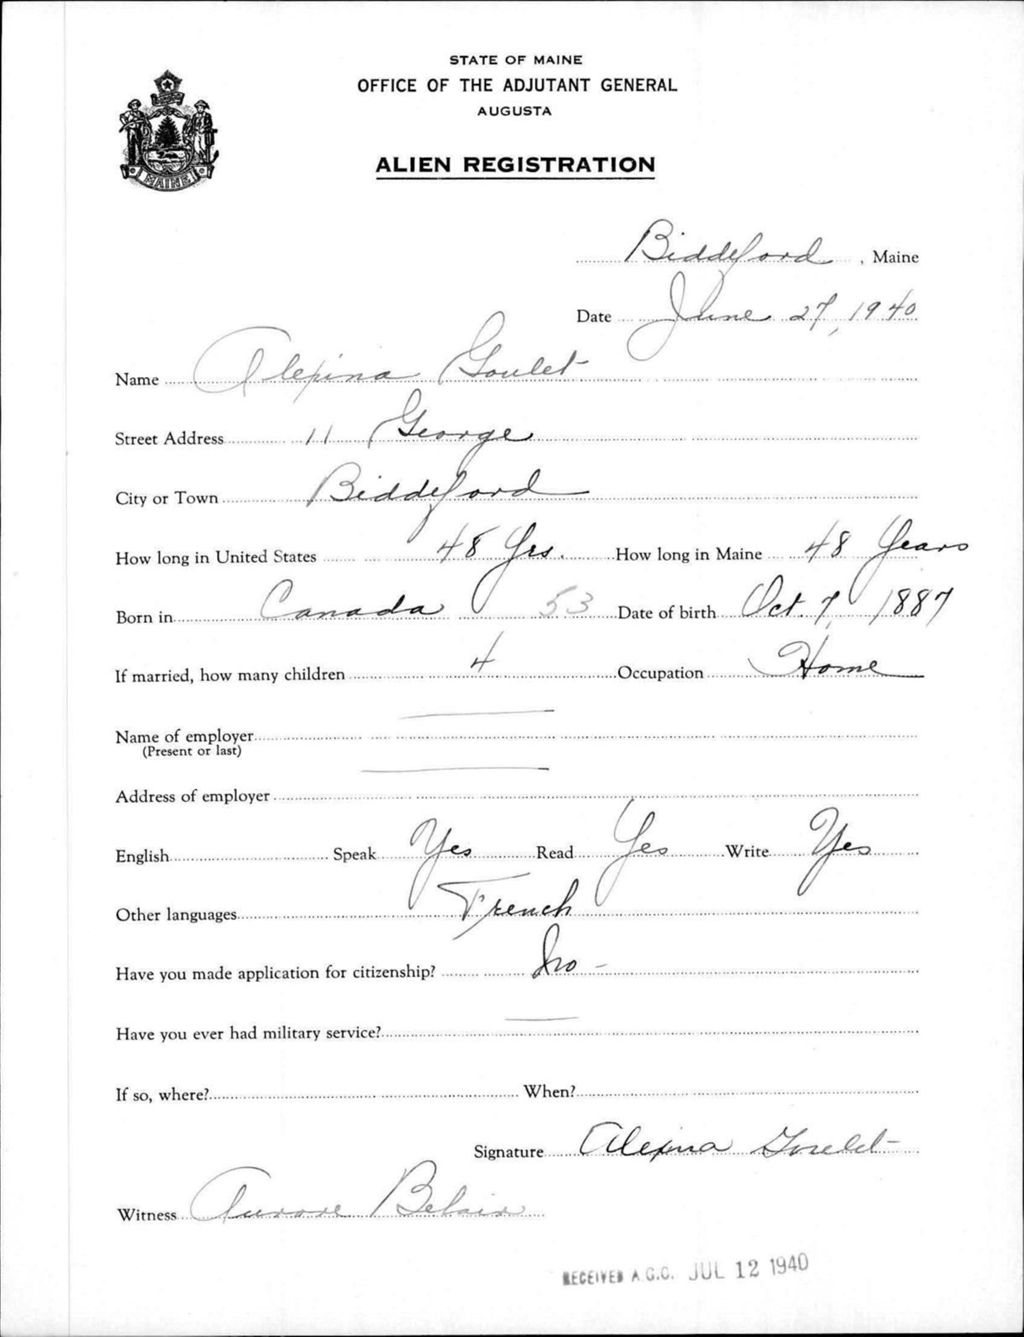 STATE OF MAINE
OFFICE OF THE ADJUTANT GENERAL
AUGUSTA
ALIEN REGISTRATION
MAINE
Biddeford, Maine
Date June 27, 1940
Name Alexina Goulet
Street Address 11 George
City or Town Biddeford
How long in United States 48 Yrs. How long in Maine 48 Years
Born in Canada 53 Date of birth Oct 7, 1887
If married, how many children 4 Occupation Home
Name of employer
(Present or last)
Address of employer
English Speak Yes Read Yes Write Yes
Other languages French
Have you made application for citizenship? No -
Have you ever had military service? —
If so, where? When?
Signature Alexina Goulet
Witness Aurore Belair
RECEIVED A.G.O. JUL 12 1940